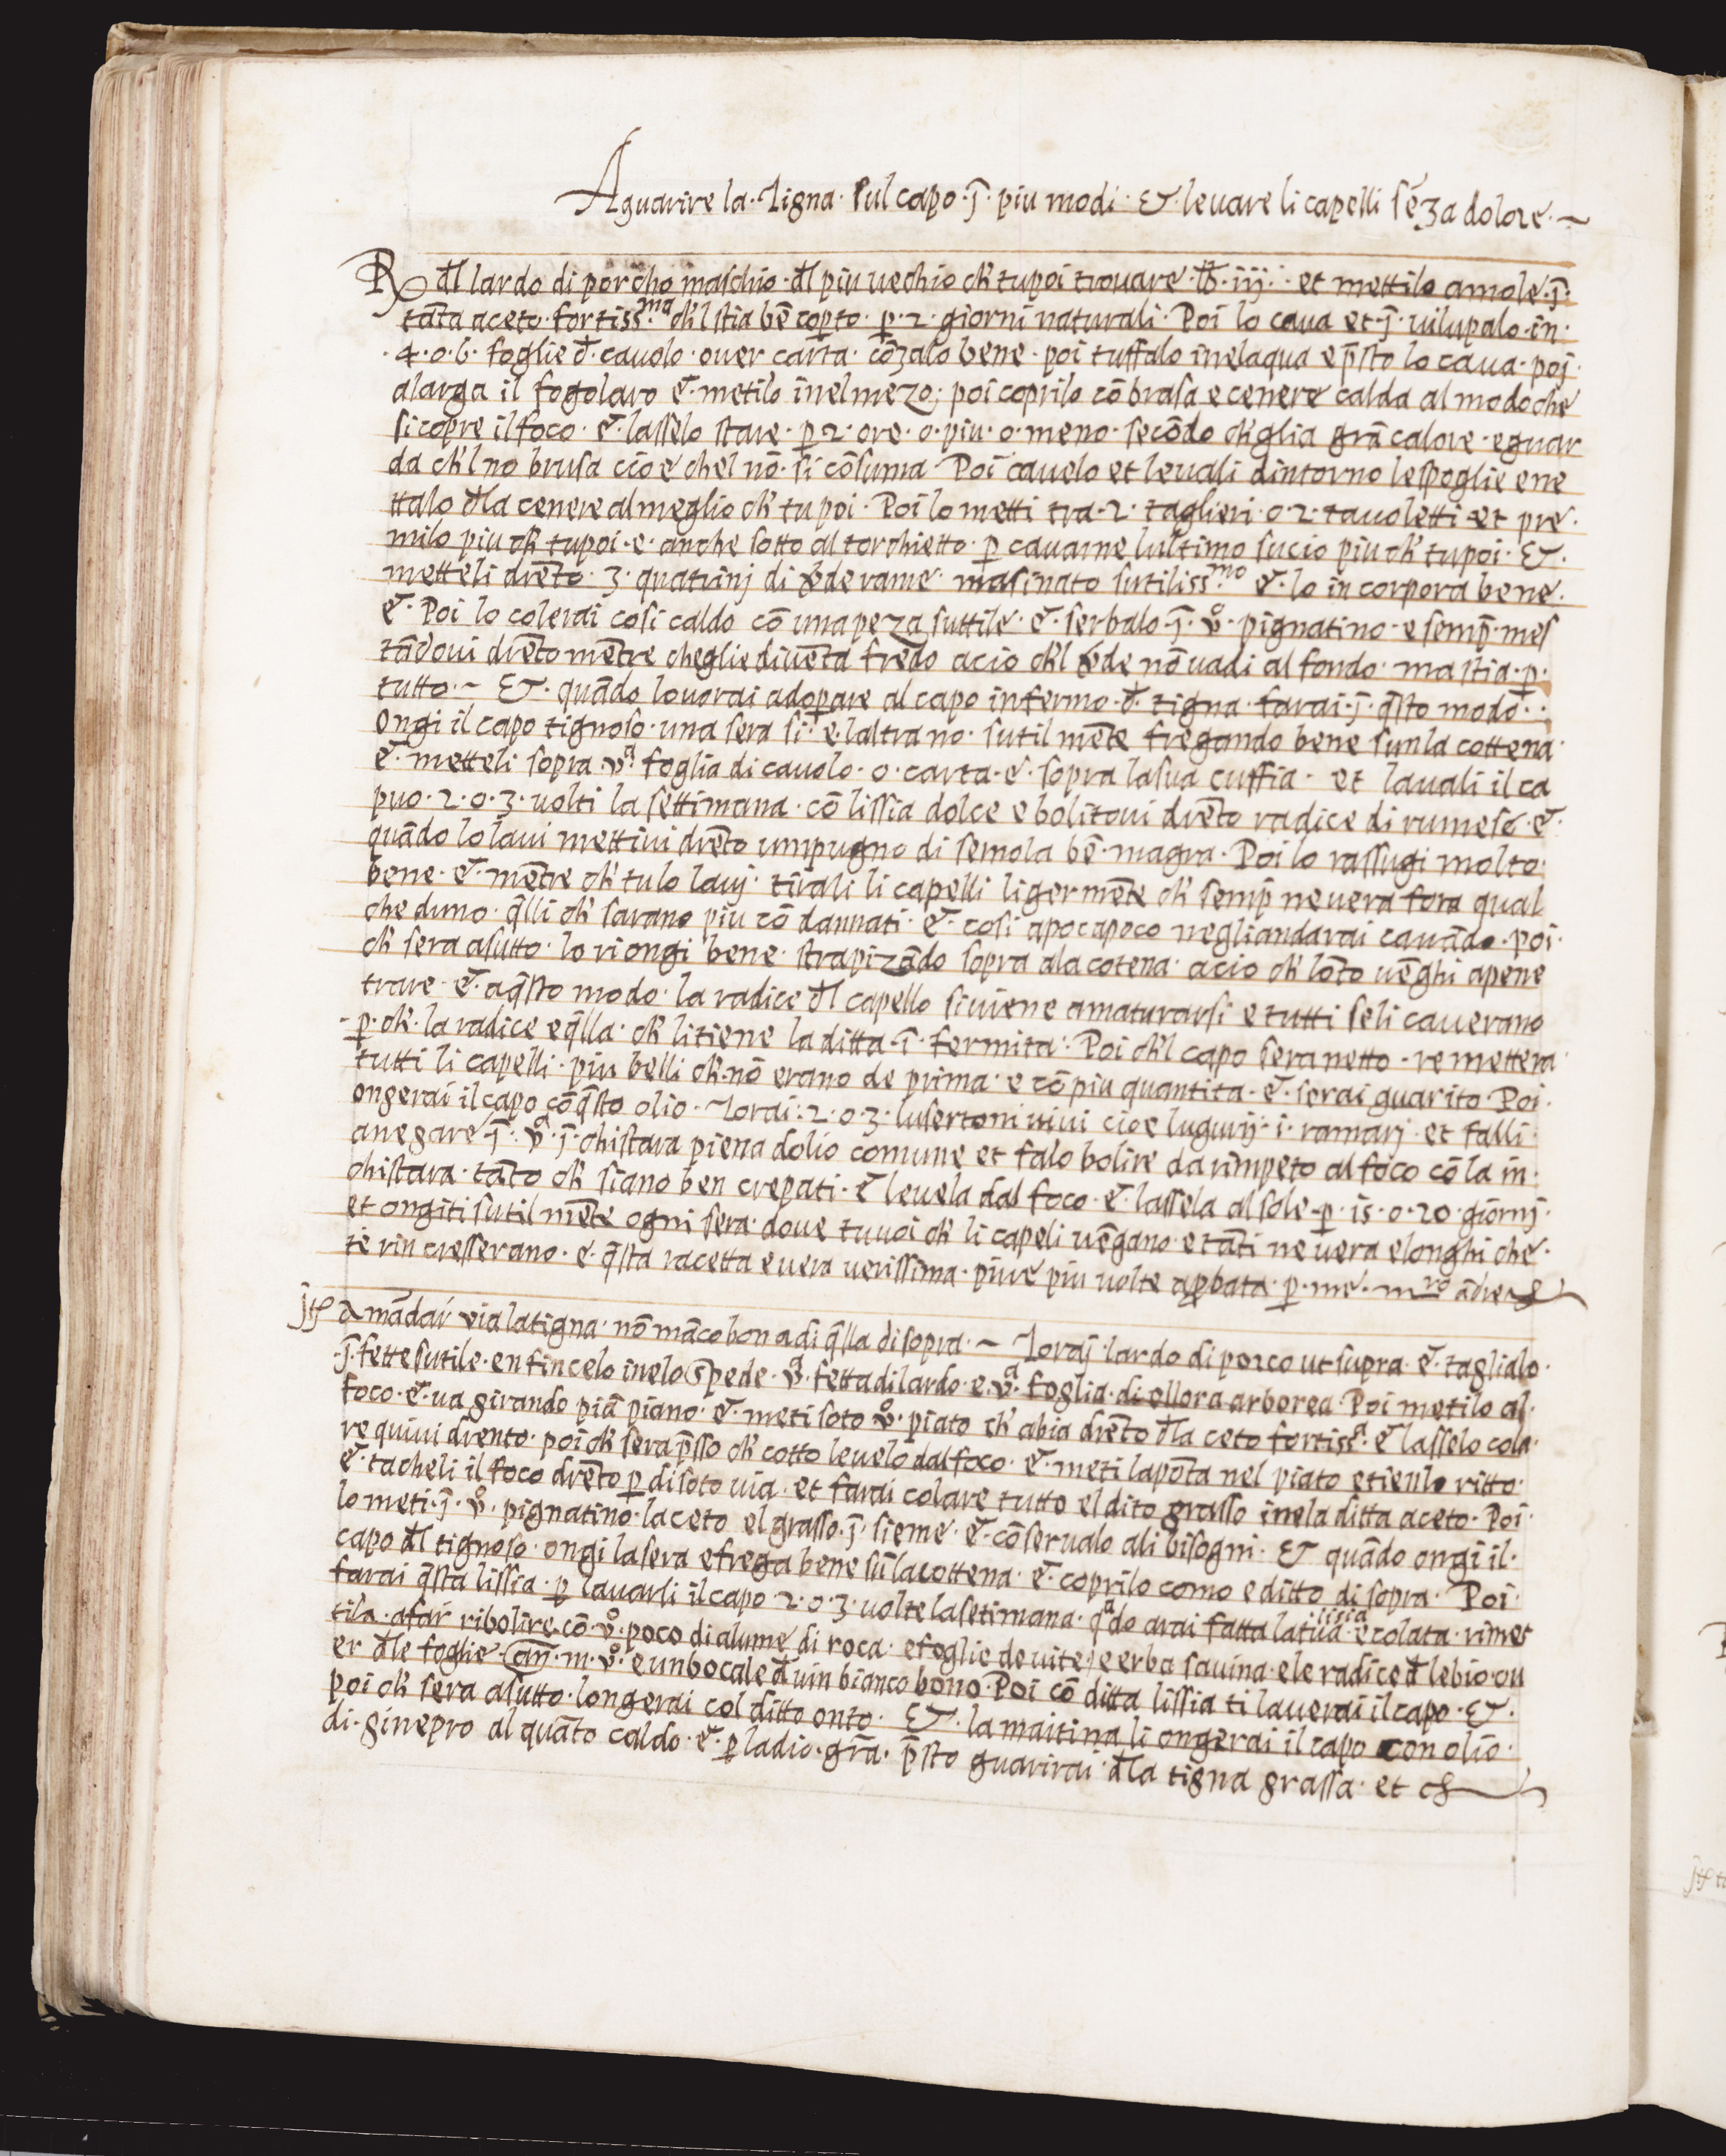 A guarire la · Tigna · sul capo · j̄ · piu modi · & · levare li capelli sēza dolore ·~
℞ đl lardo di porcho maschio · đl piu vechio ch' tu poi trovare · ℔ · iij · et mettilo a mole · j̄ ·
tāta aceto · fortiss.ᵐᵃ ch'l stia bē copto · p̱ · 2 · giorni naturali · Poi lo cava et · j̄ · vilupalo · in ·
· 4 · o · 6 · foglie đ · cavolo · over carta · cōzalo bene · poi tuffalo inelaqua e p̄sto lo cava · poi ·
alarga il fogolaro e · metilo inel mezo; poi coprilo cō brasa e cenere calda al modo che
si copre il foco · e · lasselo stare · p̱ 2 · ore · o · piu · o · meno · secōdo ch' glia grā calore · e guar
da ch'l no brusa cioe chel nō · si cōsuma · Poi cavelo et levali dintorno le spoglie e ne
ttalo đla cenere al meglio ch' tu poi · Poi lo metti tra · 2 · taglieri · o 2 · tavoletti et pre ·
milo piu ch' tu poi · e · anche sotto al torchietto · p̱ cavarne lultimo sucio piu ch' tu poi · & ·
metteli drēto · 3 · quatrinj di v̄de rame · masinato sutiliss.ᵐᵒ e · lo in corpora bene ·
e · Poi lo colerai cosi caldo cō una peza suttile · e · serbalo · j̄ · v̊ · pignatino · e semp̄ · mes
tādovi drēto mētre che glie divēta fredo acio ch'l v̄de nō vadi al fondo · ma stia · p̱ ·
tutto ·~ & · quādo lo vorai adop̱are al capo infermo · đ · tigna · farai · j̄ · q̄sto modo · ·
Ongi il capo tignoso · una sera si · e · laltra no · sutil mēte fregando bene sun la cottena ·
e · metteli sopra vᵃ foglia di cavolo · o · carta · e · sopra la sua cuffia · et lavali il ca
puo · 2 · o · 3 · volti la settimana · cō lissia dolce e bolitovi drēto radice di rumesc · e ·
quādo lo lavi mettivi drēto um pugno di semola bē · magra · Poi lo rassugi molto ·
bene · e · mētre ch' tu lo lavj · tirali li capelli liger mēte ch' semp̄ ne vera fora qual
che duno · q̄lli ch' sarano piu cō dannati · e · cosi apoc apoco negli andarai cavādo · poi ·
ch' sera asutto · lo riongi bene · strapizādo sopra ala cotena · acio ch' lōto vēghi a pene
trare · e · a q̄sto modo · la radice đl capello si viene a maturarsi e tutti seli caverano
· p̱ · ch' · la radice e q̄lla · ch' li tiene la ditta · ī · fermita · Poi ch'l capo sera netto · re mettera ·
tutti li capelli · piu belli ch' · nō erano de prima · e cō piu quantita · e · serai guarito · Poi ·
ongerai il capo cō q̄sto olio · Torai : 2 · o · 3 · lusertoni vivi cioe luguvij · i · ramarj · et falli ·
anegare · j̄ · vᵃ · j̄ · chistara piena dolio comune et falo bolire da rimpeto al foco cō la in ·
chistara · tāto ch' siano ben crepati · e levela dal foco · e · lassela al sole · p̱ · 15 · o · 20 · giornj ·
et ongiti sutil mēte ogni sera · dove tu voi ch' li capeli vēgano · e tāti ne vera e longhi che ·
te rin cresserano · e · q̄sta racetta e vera verissima · pure piu volte ap̱bata · p̱ · me · mʳᵒ ādrea
jtꝭ a mādar via la tigna · nō māco bona di q̄lla di sopra ·~ Toraj · lardo di porco ut supra · e · taglialo ·
· j̄ · fette sutile · en fincelo inelo spede · vᵃ · fetta di lardo · e · vᵃ · foglia · di ellora arborea · Poi metilo al ·
foco · e · va girando piā piano · e · meti soto v̊ · piato ch' abia drēto đla ceto fortissᵃ · e lasselo cola ·
re quivi drento · poi ch' sera p̄sso ch' cotto levelo dal foco · e · meti la pōta nel piato e tienlo ritto ·
e · tacheli il foco drēto p̱ di soto via · et farai colare tutto el dito grasso inela ditta aceto · Poi ·
lo meti · j̄ · v̊ · pignatino · laceto el grasso · j̄ · sieme · e · cōservalo ali bisogni · & quādo ongi il ·
capo đl tignoso · ongi la sera e frega bene sū la cottena · e · coprilo como e ditto di sopra · Poi ·
farai q̄sta lissia · p̱ lavarli il capo 2 · o · 3 · volte la setimana · qᵃdo arai fatta la tua lisia e colata · rimet
tila · a far ribolire · cō · v̊ · poco di alume di roca · e foglie de vite, e erba savina · e le radice đ lebio · ov
er đle foglie · an̄ · m · v̊ · e un bocale đ vin bianco bono · Poi cō ditta lissia ti laverai il capo · & ·
poi ch' sera asutto · longerai col ditto onto · & · la maitina li ongerai il capo con olio ·
di · ginepro al quāto caldo · e · p̱ la dio · grā · p̄sto guarirai · đla tigna grassa · et c̄